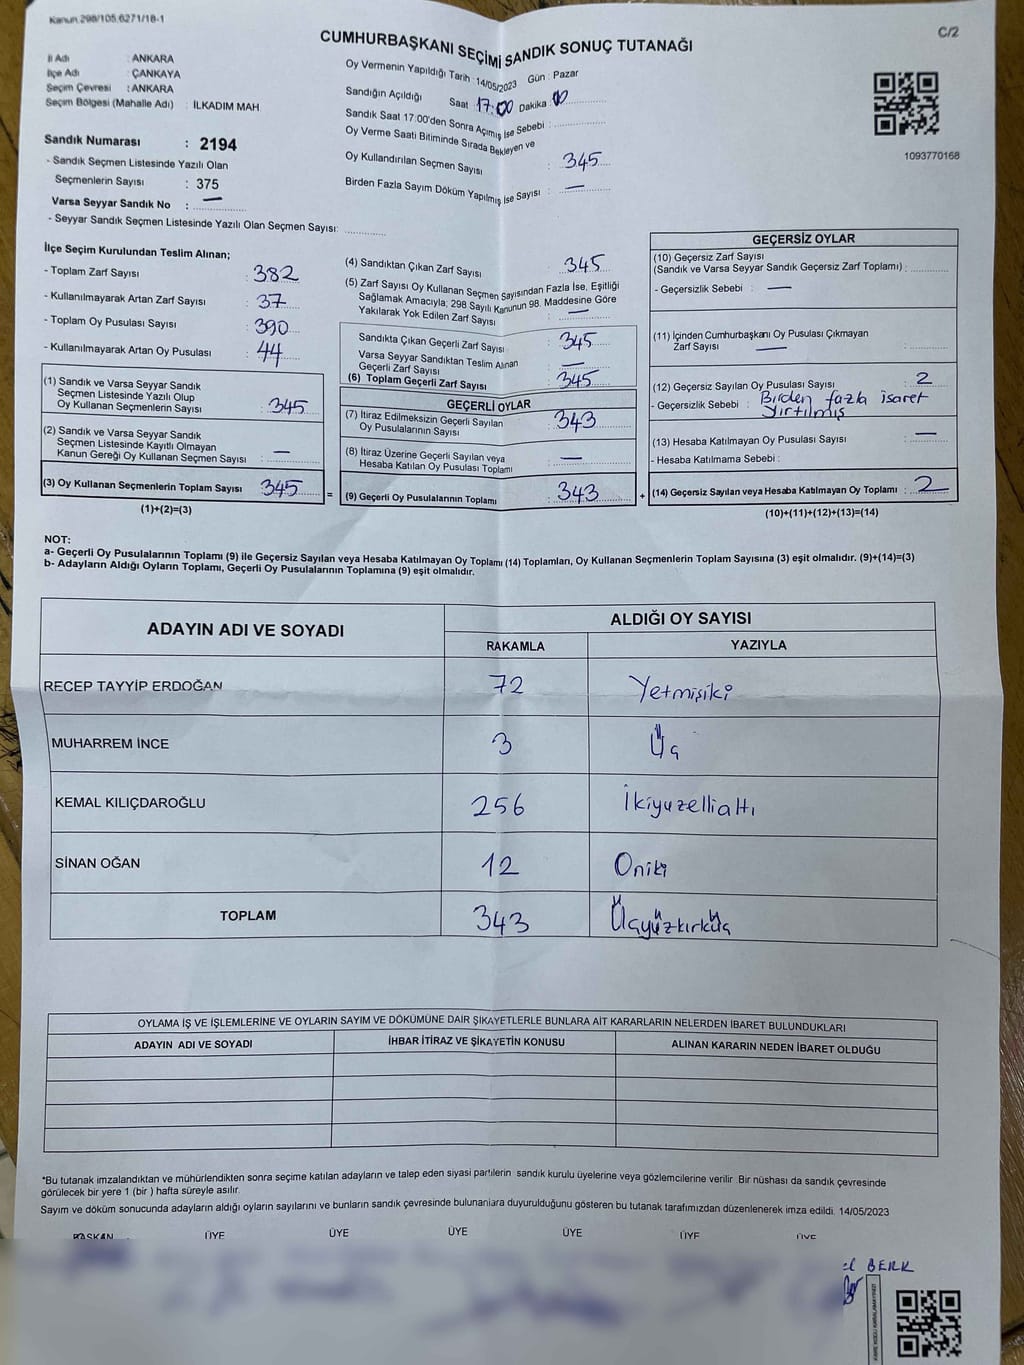 Kanun.298/105.6271/18-1
C/2
CUMHURBAŞKANI SEÇİMİ SANDIK SONUÇ TUTANAĞI
İl Adı : ANKARA
İlçe Adı : ÇANKAYA
Seçim Çevresi : ANKARA
Seçim Bölgesi (Mahalle Adı) : İLKADIM MAH.
Sandık Numarası : 2194
- Sandık Seçmen Listesinde Yazılı Olan
Seçmenlerin Sayısı : 375
Varsa Seyyar Sandık No : —
- Seyyar Sandık Seçmen Listesinde Yazılı Olan Seçmen Sayısı: ............
Oy Vermenin Yapıldığı Tarih : 14/05/2023 Gün : Pazar
Sandığın Açıldığı Saat 17:00 Dakika 00
Sandık Saat 17:00'den Sonra Açımış İse Sebebi : ............
Oy Verme Saati Bitiminde Sırada Bekleyen ve
Oy Kullandırılan Seçmen Sayısı : 345
Birden Fazla Sayım Döküm Yapılmış İse Sayısı : —
1093770168
İlçe Seçim Kurulundan Teslim Alınan;
- Toplam Zarf Sayısı : 382
- Kullanılmayarak Artan Zarf Sayısı : 37
- Toplam Oy Pusulası Sayısı : 390
- Kullanılmayarak Artan Oy Pusulası : 44
(1) Sandık ve Varsa Seyyar Sandık
Seçmen Listesinde Yazılı Olup
Oy Kullanan Seçmenlerin Sayısı : 345
(2) Sandık ve Varsa Seyyar Sandık
Seçmen Listesinde Kayıtlı Olmayan
Kanun Gereği Oy Kullanan Seçmen Sayısı : —
(3) Oy Kullanan Seçmenlerin Toplam Sayısı : 345
(1)+(2)=(3)
=
(4) Sandıktan Çıkan Zarf Sayısı : 345
(5) Zarf Sayısı Oy Kullanan Seçmen Sayısından Fazla İse, Eşitliği
Sağlamak Amacıyla; 298 Sayılı Kanunun 98. Maddesine Göre
Yakılarak Yok Edilen Zarf Sayısı : —
Sandıkta Çıkan Geçerli Zarf Sayısı : 345
Varsa Seyyar Sandıktan Teslim Alınan
Geçerli Zarf Sayısı : —
(6) Toplam Geçerli Zarf Sayısı : 345
GEÇERLİ OYLAR
(7) İtiraz Edilmeksizin Geçerli Sayılan
Oy Pusulalarının Sayısı : 343
(8) İtiraz Üzerine Geçerli Sayılan veya
Hesaba Katılan Oy Pusulası Toplamı : —
(9) Geçerli Oy Pusulalarının Toplamı : 343
+
GEÇERSİZ OYLAR
(10) Geçersiz Zarf Sayısı
(Sandık ve Varsa Seyyar Sandık Geçersiz Zarf Toplamı) : ............
- Geçersizlik Sebebi : —
(11) İçinden Cumhurbaşkanı Oy Pusulası Çıkmayan
Zarf Sayısı — : ............
(12) Geçersiz Sayılan Oy Pusulası Sayısı : 2
- Geçersizlik Sebebi : Birden fazla isaret
yırtılmış
(13) Hesaba Katılmayan Oy Pusulası Sayısı : —
- Hesaba Katılmama Sebebi :
(14) Geçersiz Sayılan veya Hesaba Katılmayan Oy Toplamı : 2
(10)+(11)+(12)+(13)=(14)
NOT:
a- Geçerli Oy Pusulalarının Toplamı (9) ile Geçersiz Sayılan veya Hesaba Katılmayan Oy Toplamı (14) Toplamları, Oy Kullanan Seçmenlerin Toplam Sayısına (3) eşit olmalıdır. (9)+(14)=(3)
b- Adayların Aldığı Oyların Toplamı, Geçerli Oy Pusulalarının Toplamına (9) eşit olmalıdır.
ADAYIN ADI VE SOYADI
ALDIĞI OY SAYISI
RAKAMLA YAZIYLA
RECEP TAYYİP ERDOĞAN 72 Yetmişiki
MUHARREM İNCE 3 Üç
KEMAL KILIÇDAROĞLU 256 İkiyuzellialtı
SİNAN OĞAN 12 Oniki
TOPLAM 343 Üçyüzkırküç
OYLAMA İŞ VE İŞLEMLERİNE VE OYLARIN SAYIM VE DÖKÜMÜNE DAİR ŞİKAYETLERLE BUNLARA AİT KARARLARIN NELERDEN İBARET BULUNDUKLARI
ADAYIN ADI VE SOYADI İHBAR İTİRAZ VE ŞİKAYETİN KONUSU ALINAN KARARIN NEDEN İBARET OLDUĞU
*Bu tutanak imzalandıktan ve mühürlendikten sonra seçime katılan adayların ve talep eden siyasi partilerin sandık kurulu üyelerine veya gözlemcilerine verilir. Bir nüshası da sandık çevresinde
görülecek bir yere 1 (bir ) hafta süreyle asılır.
Sayım ve döküm sonucunda adayların aldığı oyların sayılarını ve bunların sandık çevresinde bulunanlara duyurulduğunu gösteren bu tutanak tarafımızdan düzenlenerek imza edildi. 14/05/2023
BAŞKAN ÜYE ÜYE ÜYE ÜYE ÜYE ÜYE
BERK